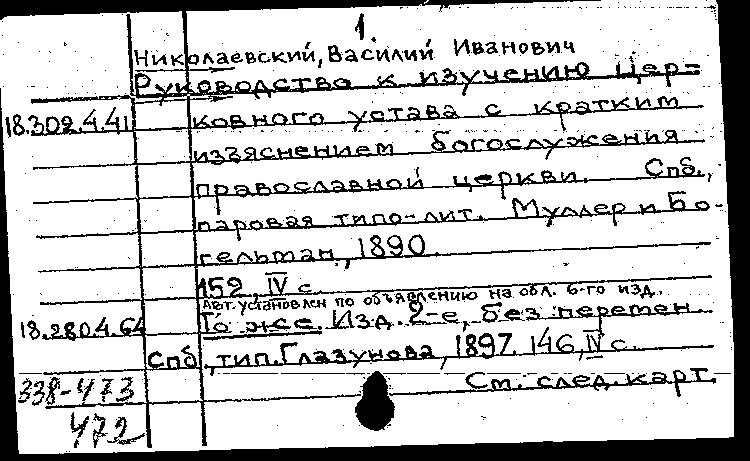 1.
Николаевский, Василий Иванович
Руководство к изучению цер=
18.302.4.41 ковного устава с кратким
изъяснением богослужения
православной церкви. Спб.,
паровая типо-лит. Муллер и Бо-
гельман, 1890.
152, IV с.
Авт. установлен по объявлению на обл. 6-го изд.
18.280.4.64 То же. Изд. 2-е, без перемен.
Спб., тип. Глазунова, 1897. 146, IV с.
338-473 См. след. карт.
472